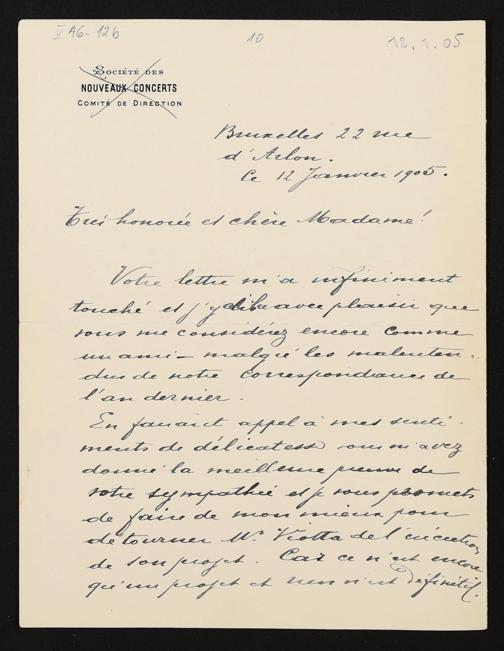 V A6-126 10 12.1.05
SOCIÉTÉ DES
NOUVEAUX CONCERTS
COMITÉ DE DIRECTION
Bruxelles 22 rue
d'Arlon.
le 12 Janvier 1905.
Très honorée et chère Madame!
Votre lettre m'a infiniment
touché et j'y avec plaisir que
vous me considérez encore comme
un ami – malgré les malenten-
dus de notre correspondance de
l'an dernier.
En faisant appel à mes senti-
ments de délicatesse vous m'avez
donné la meilleure preuve de
votre sympathie et je vous promets
de faire de mon mieux pour
détourner Mr. Viotta de l'exécution
de son projet. Car ce n'est encore
qu'un projet et rien n'est définitif.